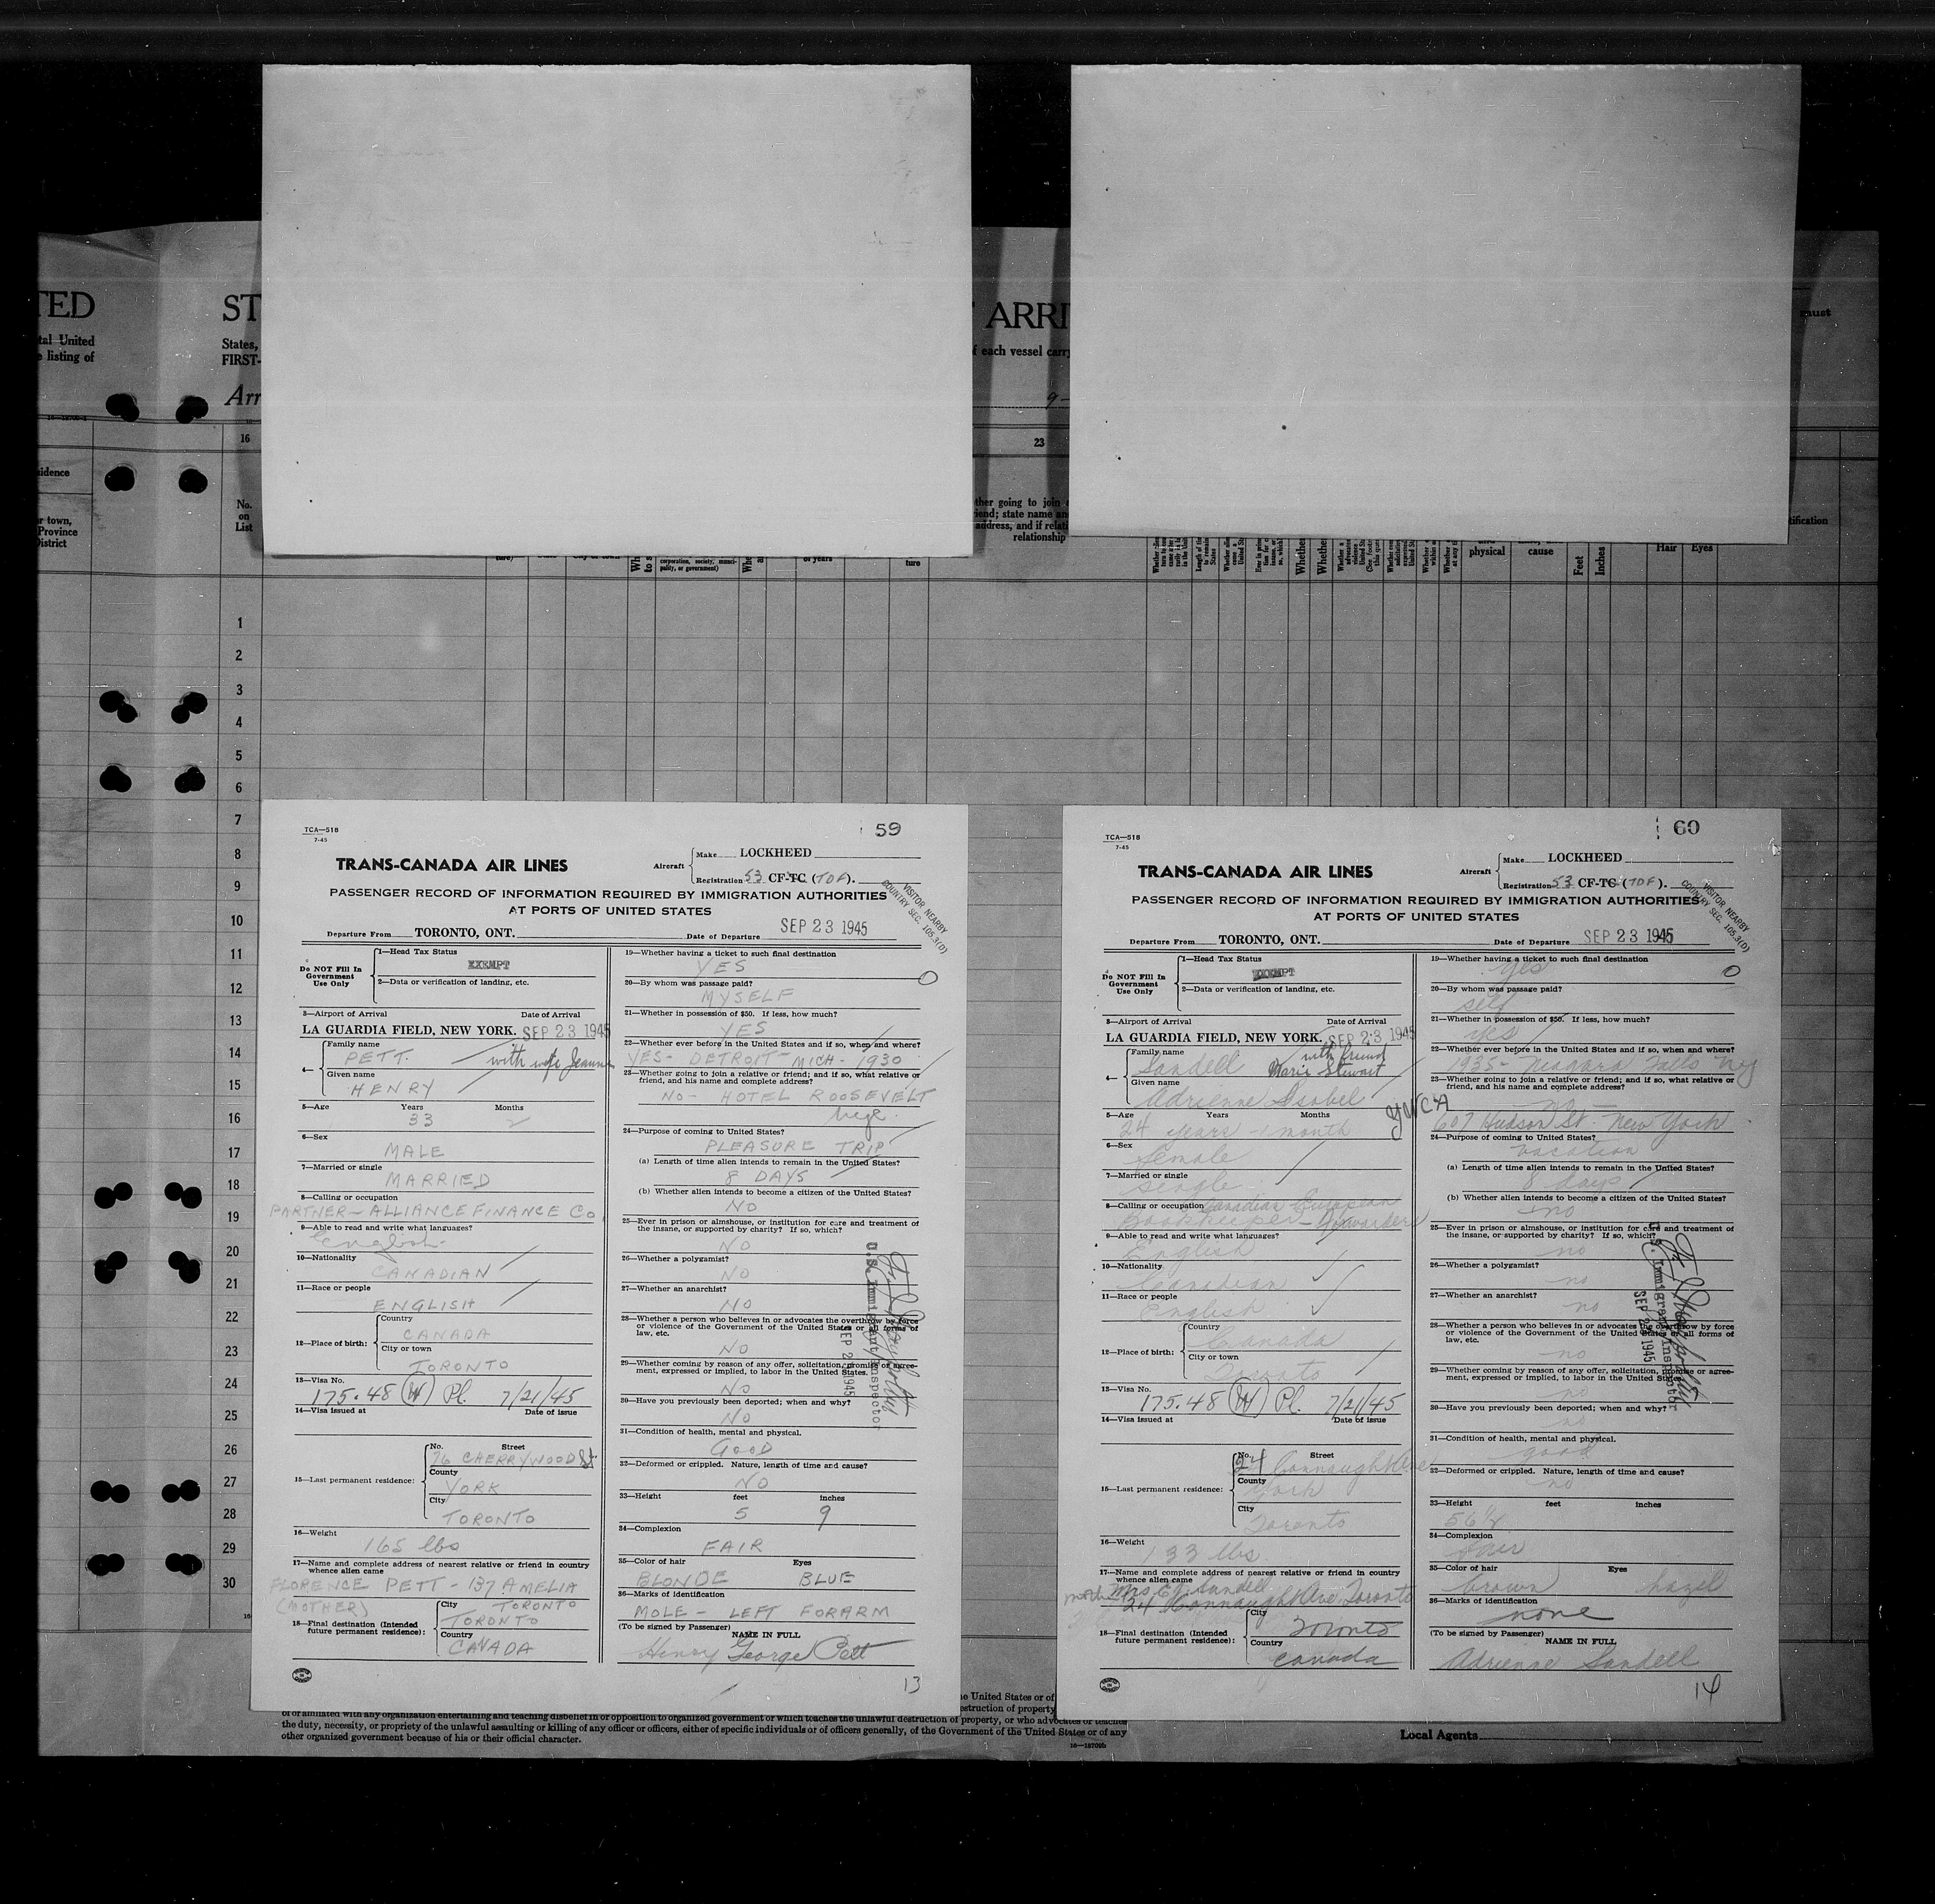 TED
tal United
e listing of
ST
States,
FIRST-
Arr
ARRI
f each vessel carry
9-
must
16
23
sidence
r town,
Province
District
No.
on
List
ther going to join
iend; state name an
address, and if relati
relationship
corporation, society, munici-
pality, or government)
of years
ture
physical
cause
Feet
Inches
Hair Eyes
tification
1
2
3
4
5
6
7
8
9
10
11
12
13
14
15
16
17
18
19
20
21
22
23
24
25
26
27
28
29
30
TCA—518
7-45
59
TRANS-CANADA AIR LINES
Aircraft
Make LOCKHEED
Registration 53 CF-TC (TDF).
PASSENGER RECORD OF INFORMATION REQUIRED BY IMMIGRATION AUTHORITIES
AT PORTS OF UNITED STATES
VISITOR NEARBY
COUNTRY SEC. 105.3(D)
Departure From TORONTO, ONT. Date of Departure SEP 23 1945
Do NOT Fill In
Government
Use Only
1—Head Tax Status
EXEMPT
2—Data or verification of landing, etc.
3—Airport of Arrival Date of Arrival
LA GUARDIA FIELD, NEW YORK. SEP 23 1945
4—
Family name
PETT. with wife Jeanne
Given name
HENRY
5—Age Years Months
33 2
6—Sex
MALE
7—Married or single
MARRIED
8—Calling or occupation
PARTNER—ALLIANCE FINANCE Co.
9—Able to read and write what languages?
English
10—Nationality
CANADIAN
11—Race or people
ENGLISH
12—Place of birth:
Country
CANADA
City or town
TORONTO
13—Visa No.
175.48 (W) Pl. 7/21/45
14—Visa issued at Date of issue
15—Last permanent residence:
No. Street
76 CHERRYWOOD St
County
YORK
City
TORONTO
16—Weight
165 lbs
17—Name and complete address of nearest relative or friend in country
whence alien came
FLORENCE PETT - 137 AMELIA
(MOTHER) TORONTO
18—Final destination (Intended
future permanent residence):
City
TORONTO
Country
CANADA
19—Whether having a ticket to such final destination
YES
0
20—By whom was passage paid?
MYSELF
21—Whether in possession of $50. If less, how much?
YES
22—Whether ever before in the United States and if so, when and where?
YES- DETROIT- MICH- 1930
23—Whether going to join a relative or friend; and if so, what relative or
friend, and his name and complete address?
NO- HOTEL ROOSEVELT
24—Purpose of coming to United States?
PLEASURE TRIP
(a) Length of time alien intends to remain in the United States?
8 DAYS
(b) Whether alien intends to become a citizen of the United States?
NO
25—Ever in prison or almshouse, or institution for care and treatment of
the insane, or supported by charity? If so, which?
NO
26—Whether a polygamist?
NO
27—Whether an anarchist?
NO
28—Whether a person who believes in or advocates the overthrow by force
or violence of the Government of the United States or all forms of
law, etc.
NO
29—Whether coming by reason of any offer, solicitation, promise or agree-
ment, expressed or implied, to labor in the United States.
NO
30—Have you previously been deported; when and why?
NO
31—Condition of health, mental and physical.
GOOD
32—Deformed or crippled. Nature, length of time and cause?
NO
33—Height feet inches
5 9
34—Complexion
FAIR
35—Color of hair Eyes
BLONDE BLUE
36—Marks of identification
MOLE - LEFT FORARM
(To be signed by Passenger)
NAME IN FULL
Henry George Pett
U.S. Immigrant Inspector
SEP 23 1945
13
TCA—518
7-45
60
TRANS-CANADA AIR LINES
Aircraft
Make LOCKHEED
Registration 53 CF-TC (TDF).
PASSENGER RECORD OF INFORMATION REQUIRED BY IMMIGRATION AUTHORITIES
AT PORTS OF UNITED STATES
VISITOR NEARBY
COUNTRY SEC. 105.3(D)
Departure From TORONTO, ONT. Date of Departure SEP 23 1945
Do NOT Fill In
Government
Use Only
1—Head Tax Status
EXEMPT
2—Data or verification of landing, etc.
3—Airport of Arrival Date of Arrival
LA GUARDIA FIELD, NEW YORK. SEP 23 1945
4—
Family name
Sandell with friend
Marie Stewart
Given name
Adrienne Isobel
5—Age Years Months
24 years - 1 month
6—Sex
female
7—Married or single
single
8—Calling or occupation Canadian European
Bookkeeper - Forwarders
9—Able to read and write what languages?
English
10—Nationality
Canadian
11—Race or people
English
12—Place of birth:
Country
Canada
City or town
Toronto
13—Visa No.
175.48 (W) Pl. 7/21/45
14—Visa issued at Date of issue
15—Last permanent residence:
No. Street
24 Connaught Ave
County
York
City
Toronto
16—Weight
133 lbs
17—Name and complete address of nearest relative or friend in country
whence alien came
mother Mrs. E. J. Sandell
24 Connaught Ave Toronto
18—Final destination (Intended
future permanent residence):
City
Toronto
Country
Canada
19—Whether having a ticket to such final destination
yes
0
20—By whom was passage paid?
self
21—Whether in possession of $50. If less, how much?
yes
22—Whether ever before in the United States and if so, when and where?
1935 - Niagara Falls NY
23—Whether going to join a relative or friend; and if so, what relative or
friend, and his name and complete address?
no -
YWCA
607 Hudson St. New York
24—Purpose of coming to United States?
vacation
(a) Length of time alien intends to remain in the United States?
8 days
(b) Whether alien intends to become a citizen of the United States?
no
25—Ever in prison or almshouse, or institution for care and treatment of
the insane, or supported by charity? If so, which?
no
26—Whether a polygamist?
no
27—Whether an anarchist?
no
28—Whether a person who believes in or advocates the overthrow by force
or violence of the Government of the United States or all forms of
law, etc.
no
29—Whether coming by reason of any offer, solicitation, promise or agree-
ment, expressed or implied, to labor in the United States.
no
30—Have you previously been deported; when and why?
no
31—Condition of health, mental and physical.
good
32—Deformed or crippled. Nature, length of time and cause?
no
33—Height feet inches
5 6½
34—Complexion
fair
35—Color of hair Eyes
brown hazel
36—Marks of identification
none
(To be signed by Passenger)
NAME IN FULL
Adrienne Sandell
U.S. Immigrant Inspector
SEP 23 1945
14
e United States or of
estruction of property
or of affiliated with any organization entertaining and teaching disbelief in or opposition to organized government or which teaches the unlawful destruction of property, or who advocates or teaches
the duty, necessity, or propriety of the unlawful assaulting or killing of any officer or officers, either of specific individuals or of officers generally, of the Government of the United States or of any
other organized government because of his or their official character.
16—18709b
Local Agents